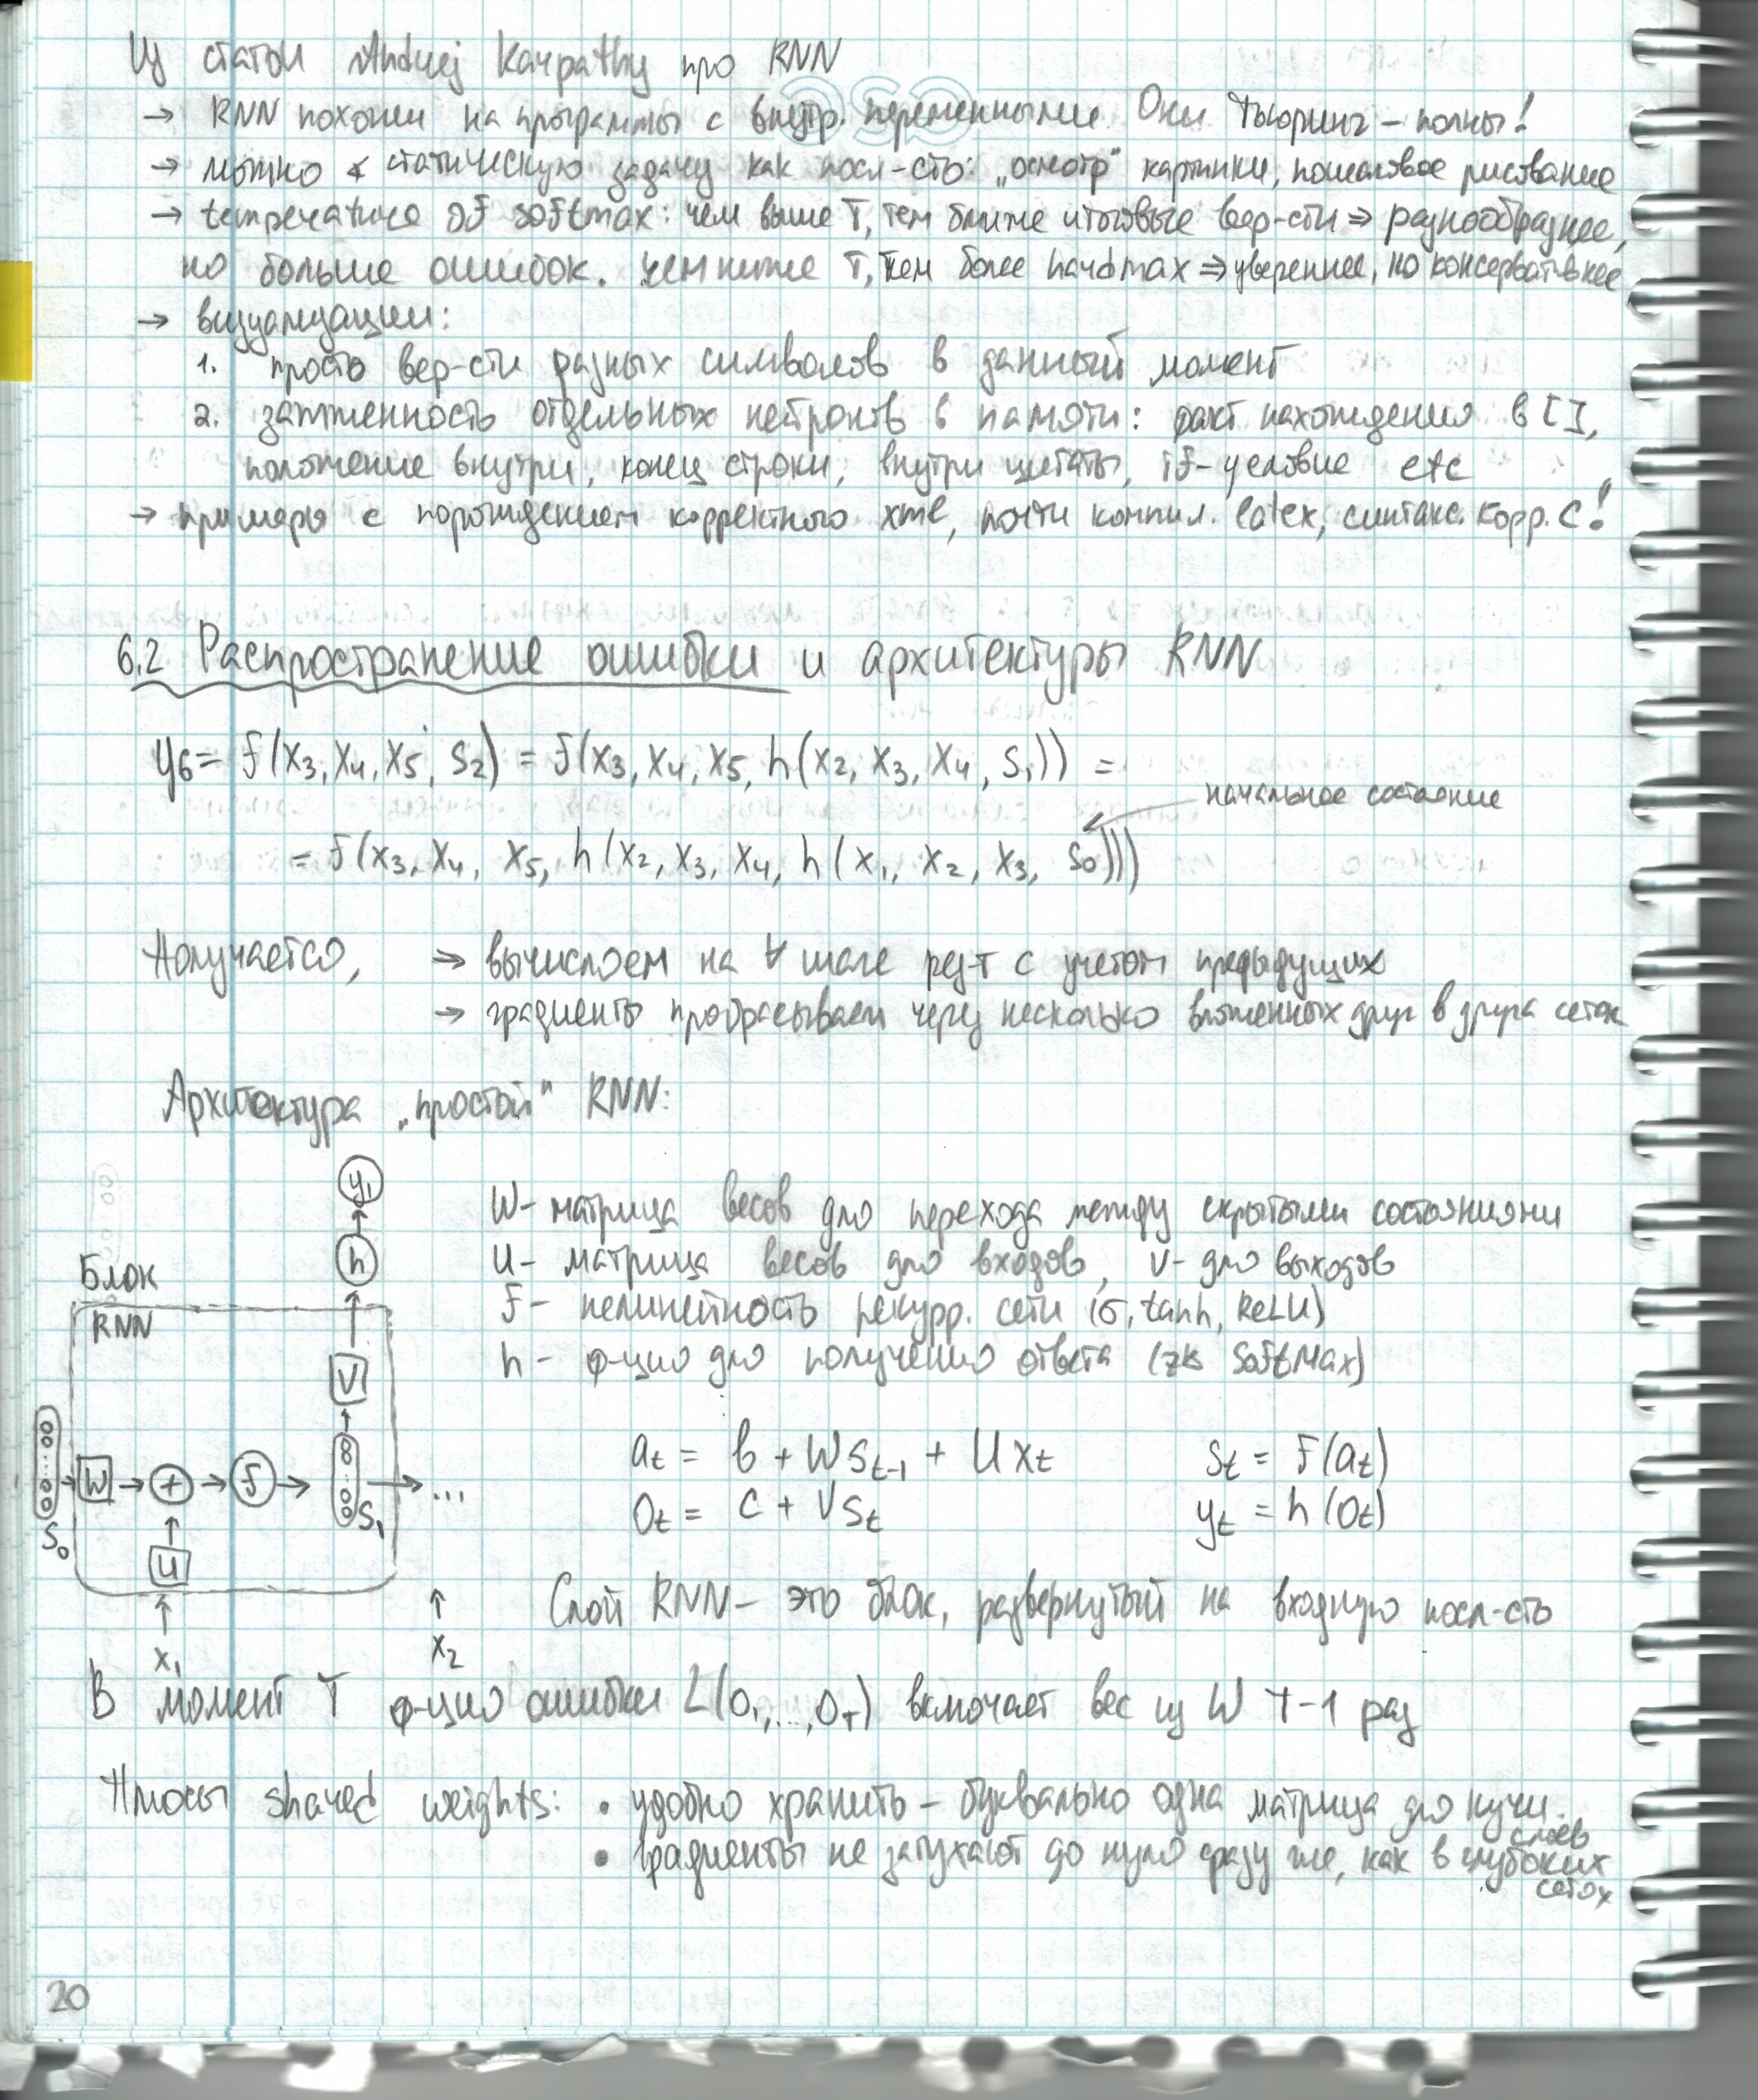 Из статьи Andrej Karpathy про RNN
→ RNN похожи на программы с внутр. переменными. Они Тьюринг-полны!
→ можно ∢ статическую задачу как посл-сть: „осмотр" картинки, пошаговое рисование
→ temperature of softmax: чем выше T, тем ближе итоговые вер-сти ⇒ разнообразнее,
но больше ошибок. Чем ниже T, тем более hardmax ⇒ увереннее, но консервативнее
→ визуализации:
1. просто вер-сти разных символов в данный момент
2. зажженность отдельных нейронов в памяти: факт нахождения в [],
положение внутри, конец строки, внутри цитаты, if-условие etc
→ примеры с порождением корректного xml, почти компил. latex, синтакс. корр. C!
6.2 Распространение ошибки и архитектуры RNN
y₆ = f(x₃, x₄, x₅, s₂) = f(x₃, x₄, x₅, h(x₂, x₃, x₄, s₁)) =
начальное состояние
= f(x₃, x₄, x₅, h(x₂, x₃, x₄, h(x₁, x₂, x₃, s₀)))
Получается, → вычисляем на ∀ шаге рез-т с учетом предыдущих
→ градиенты пробрасываем через несколько вложенных друг в друга сеток
Архитектура „простой" RNN:
y₁
W - матрица весов для перехода между скрытыми состояниями
h
U - матрица весов для входов, V - для выходов
Блок
RNN
f - нелинейность рекурр. сети (σ, tanh, ReLU)
h - ф-ция для получения ответа (SoftMax)
V
aₜ = b + Wsₜ₋₁ + Uxₜ sₜ = f(aₜ)
W → + → f → s₁ → ...
oₜ = c + Vsₜ yₜ = h(oₜ)
s₀
U
Слой RNN - это блок, развернутый на входную посл-сть
x₁ x₂
В момент T ф-ция ошибки L(o₁,...,o_T) включает вес из W T-1 раз
Плюсы shared weights: • удобно хранить - буквально одна матрица для кучи слоев
• градиенты не затухают до нуля сразу же, как в глубоких сетях
20